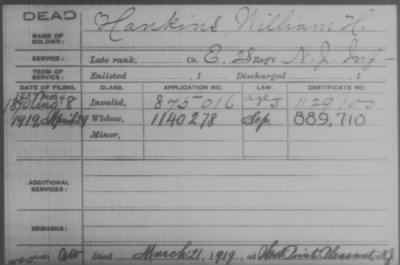 DEAD
NAME OF SOLDIER: Hankins, William H.
SERVICE: Late rank, Co. E, 28 Reg't N. J. Inf
TERM OF SERVICE: Enlisted , 1 Discharged , 1
DATE OF FILING. CLASS. APPLICATION NO. LAW. CERTIFICATE NO.
1890 Aug 8 Invalid, 875016
1919, April 29 Widow, 1140278 Sep. 889,710
Minor,
ADDITIONAL SERVICES:
REMARKS:
Died March 21, 1919, at Point Pleasant, N.J.